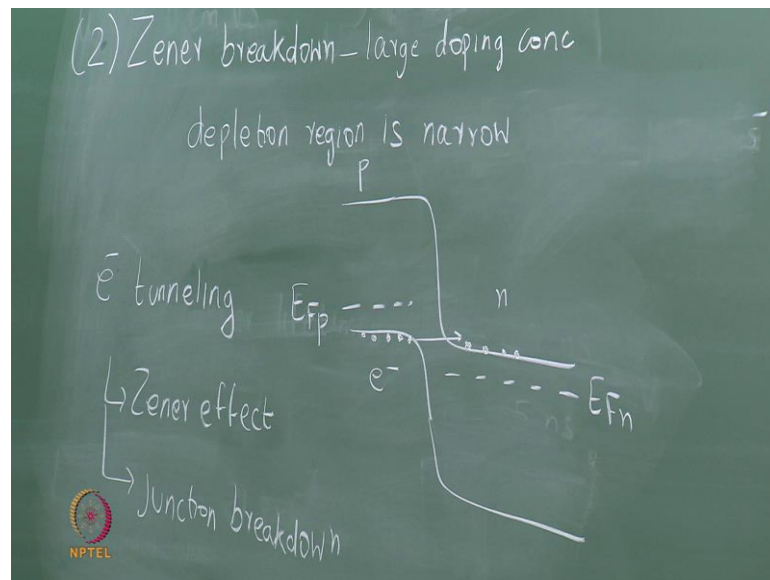 (2) Zener breakdown – large doping conc
depletion region is narrow
P
n
e⁻ tunneling
E_Fp
e⁻
E_Fn
Zener effect
Junction breakdown
NPTEL